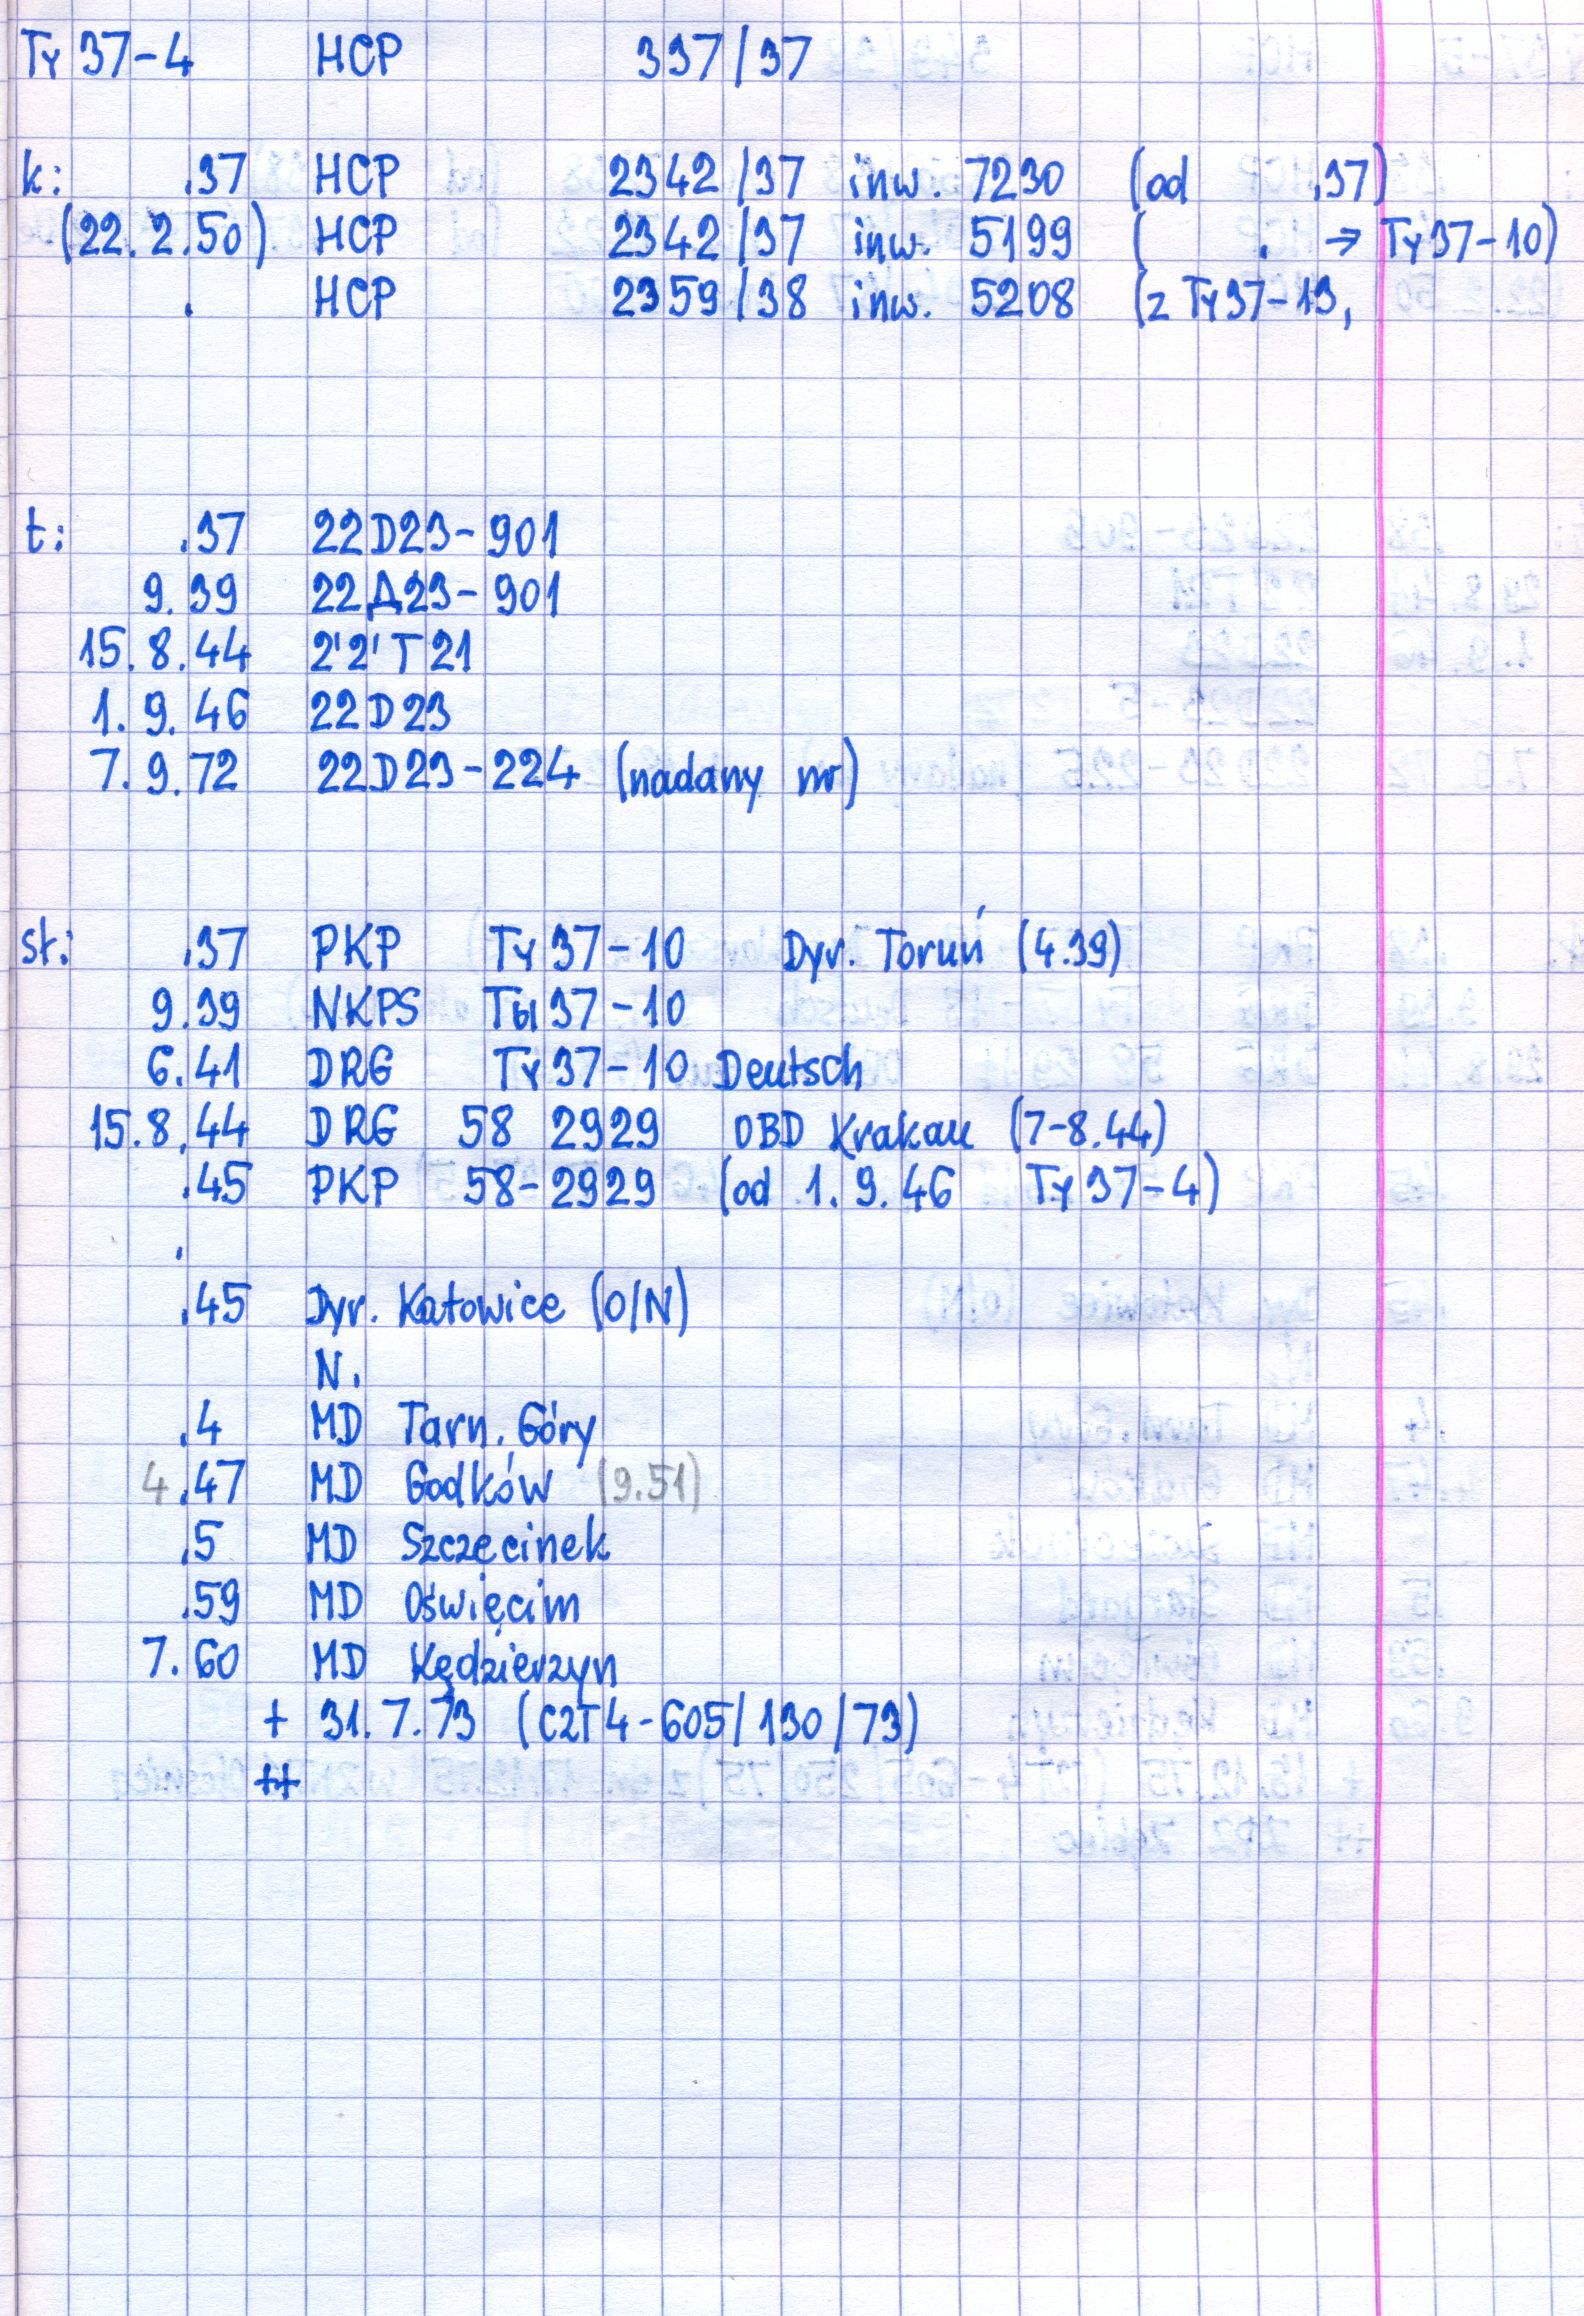 Ty 37-4 HCP 337/37
k: .37 HCP 2342/37 inw. 7230 (od .37)
(22.2.50) HCP 2342/37 inw. 5199 ( . → Ty37-10)
. HCP 2359/38 inw. 5208 (z Ty37-13,
t: .37 22D23-901
9.39 22Д23-901
15.8.44 2'2'T21
1.9.46 22D23
7.9.72 22D23-224 (nadany nr)
sł: .37 PKP Ty37-10 Dyr. Toruń (4.39)
9.39 NKPS Ты37-10
6.41 DRG Ty37-10 Deutsch
15.8.44 DRG 58 2929 OBD Krakau (7-8.44)
.45 PKP 58-2929 (od 1.9.46 Ty37-4)
.
.45 Dyr. Katowice (O/N)
N.
.4 MD Tarn. Góry
4.47 MD Godków (9.51)
.5 MD Szczecinek
.59 MD Oświęcim
7.60 MD Kędzierzyn
+ 31.7.73 (CZT4-605/130/73)
++